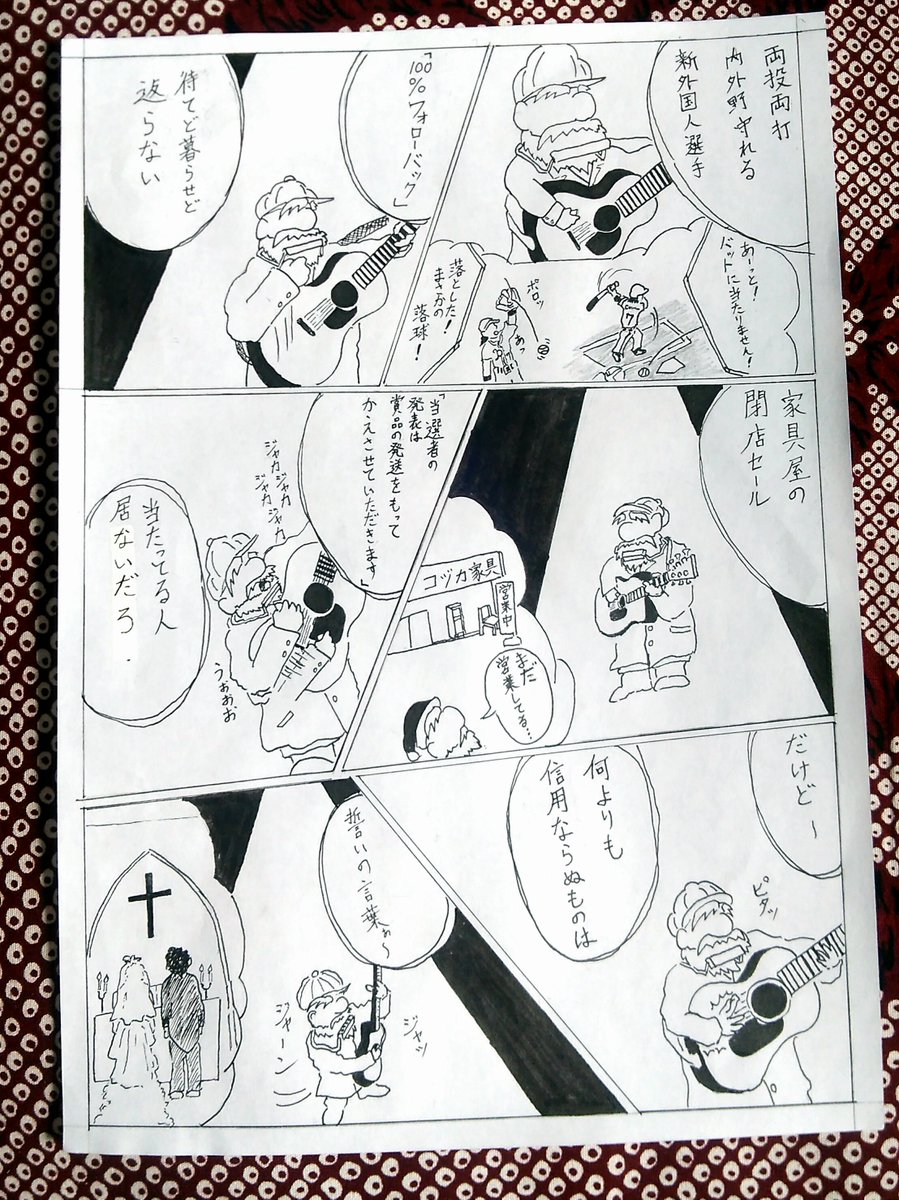 両投両打
内外野守れる
新外国人選手
あーっと!
バットに当たりません!
ポロッ
あっ
落とした!
まさかの
落球!
7
「100%フォローバック」
待てど暮らせど
返らない
家具屋の
閉店セール
コヅカ家具
営業中
まだ
営業してる…
「当選者の
発表は
賞品の発送をもって
かえさせていただきます」
ジャカジャカ
ジャカジャカ
うぉぉぉ
当たってる人
居ないだろ・・
だけど〜
ピタッ
何よりも
信用ならぬものは
誓いの言葉ぁ〜
ジャッ
ジャーン